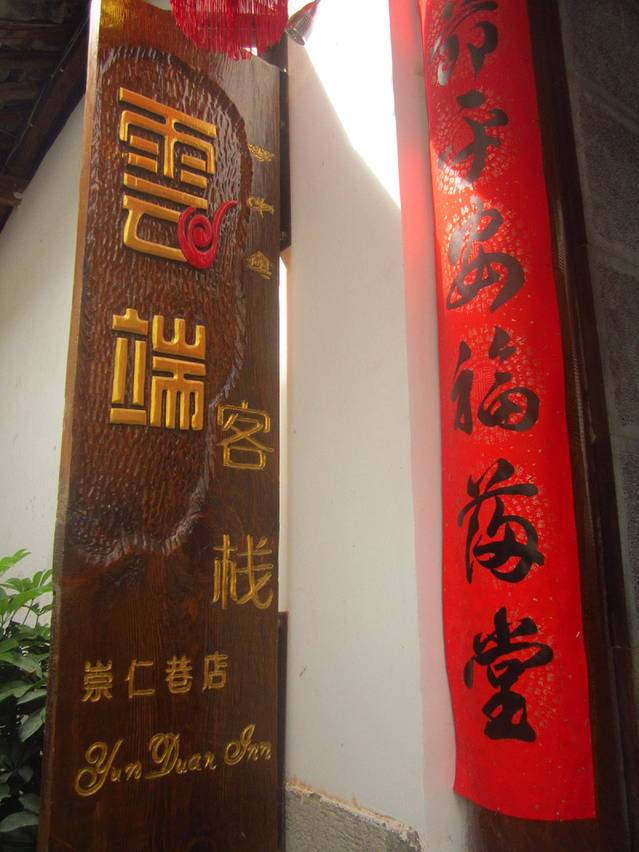 雲端
客栈
崇仁巷店
Yun Duan Inn
节平安福满堂